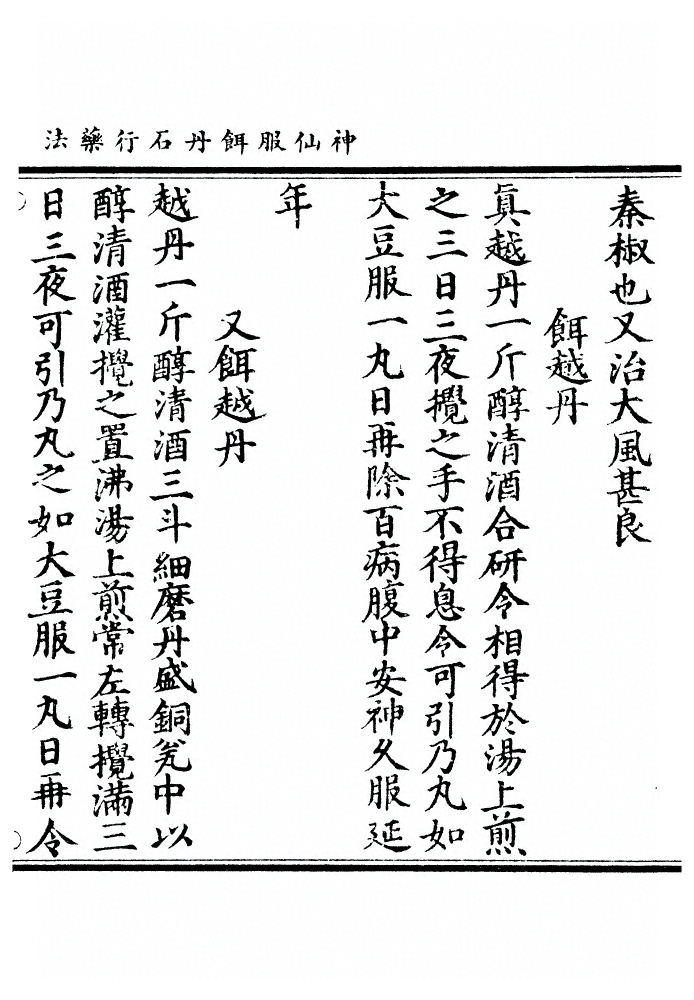 神仙服餌丹石行藥法
秦椒也又治大風甚良
餌越丹
眞越丹一斤醇清酒合研令相得於湯上煎
之三日三夜攪之手不得息令可引乃丸如
大豆服一丸日再除百病腹中安神久服延
年
又餌越丹
越丹一斤醇清酒三斗細磨丹盛銅瓮中以
醇清酒灌攪之置沸湯上煎常左轉攪滿三
日三夜可引乃丸之如大豆服一丸日再令